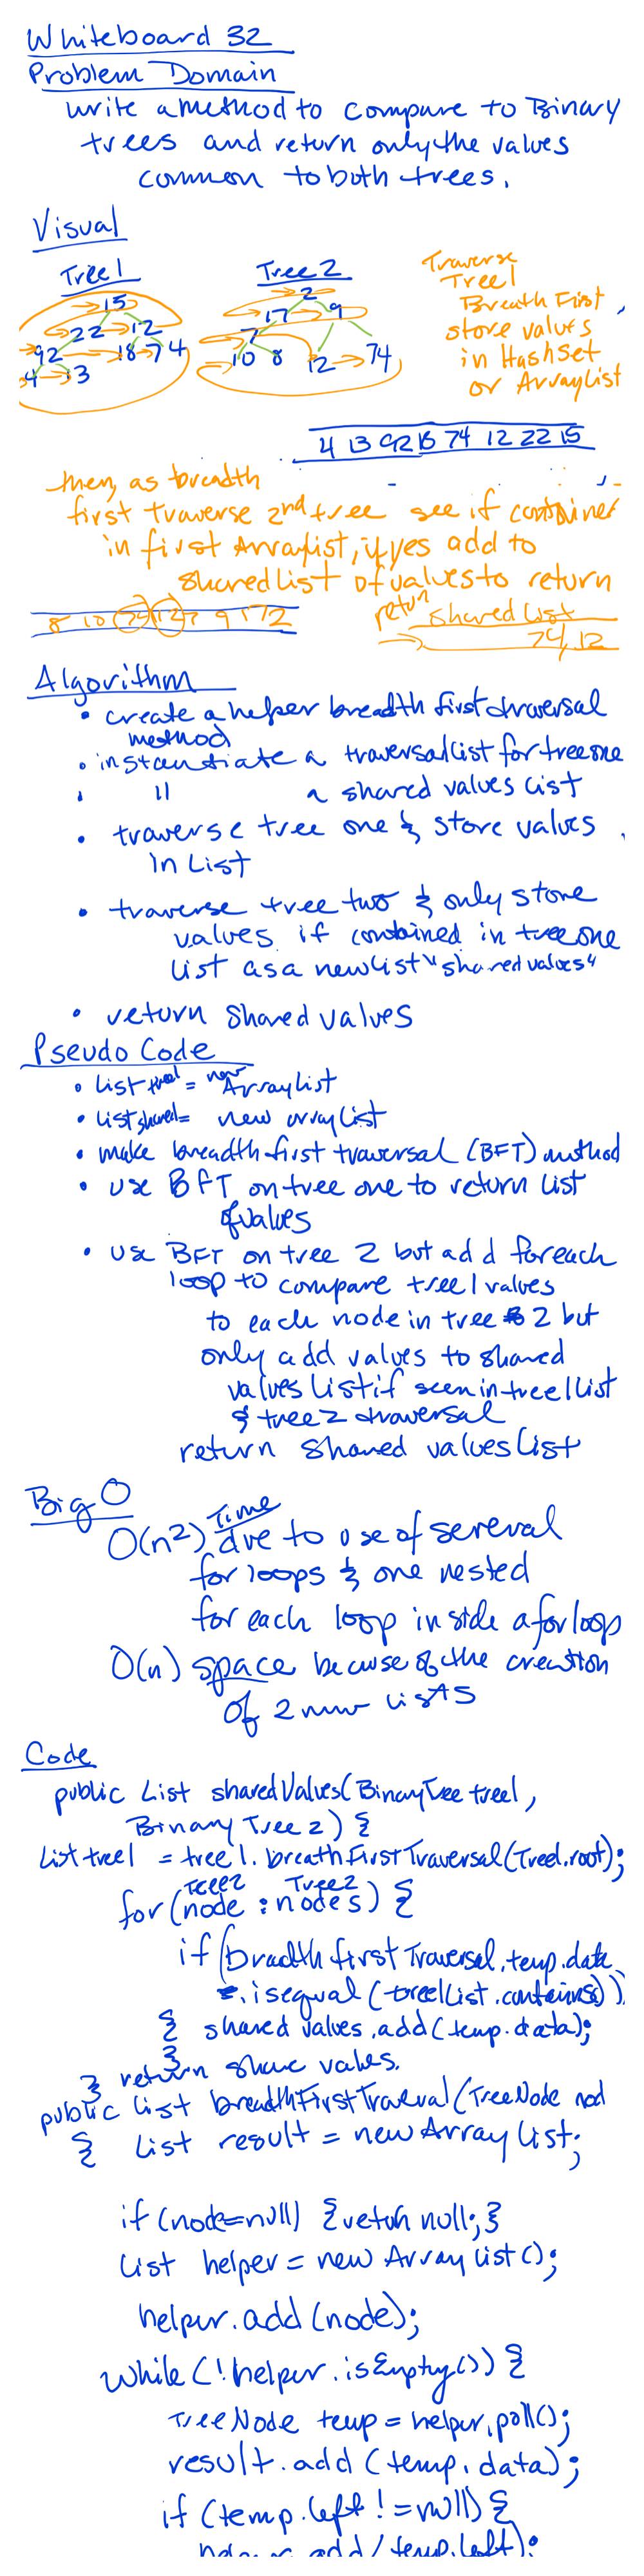 Whiteboard 32
Problem Domain
write a method to compare to Binary
trees and return only the values
common to both trees.
Visual
Tree 1
Tree 2
15
22 12
92 18 74
4 13
2
17 9
7
10 8 12 74
Traverse
Tree 1
Breath First,
store values
in HashSet
or ArrayList
4 13 92 18 74 12 22 15
then, as breadth
first traverse 2nd tree see if container
in first Arraylist, if yes add to
shared list of values to return
8 10 74 12 7 9 17 2
retun shared List
74, 12
Algorithm
• create a helper breadth first traversal
method
• instantiate a traversal list for tree one
• " a shared values list
• traverse tree one & store values
in List
• traverse tree two & only store
values if combined in tree one
list as a new list "shared values"
• return shared values
Pseudo Code
• List tree1 = new ArrayList
• list shared = new arraylist
• make breadth-first traversal (BFT) method
• use BFT on tree one to return list
of values
• use BFT on tree 2 but add foreach
loop to compare tree 1 values
to each node in tree 2 but
only add values to shared
values list if seen in tree 1 list
& tree 2 traversal
return shared values list
Big O
O(n²) Time due to use of sereval
for loops & one nested
for each loop inside a for loop
O(n) space because of the creation
of 2 new lists
Code
public List sharedValues(BinaryTree tree1,
Binary Tree 2) {
List tree1 = tree1.breathFirstTraversal(Tree1.root);
Tree2 Tree2
for (node : nodes) {
if (breadth first Traversal.temp.data
.isequal (tree1List.contains))
{ shared values.add(temp.data);
}
} return share values.
public List breadthFirstTraeval(TreeNode nod
{ List result = new Array list;
if (node=null) {retun null;}
List helper = new Array List();
helper.add(node);
while (!helper.isEmpty()) {
TreeNode temp = helper.poll();
result.add (temp.data);
if (temp.left != null) {
helper.add(temp.left);